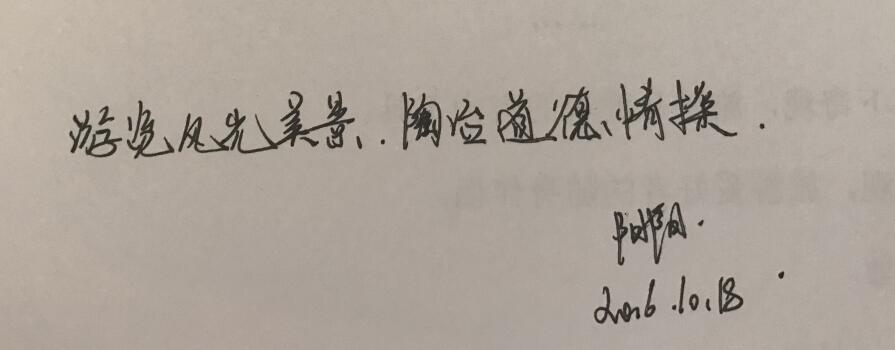 游览风光美景.陶冶道德情操.
2016.10.18